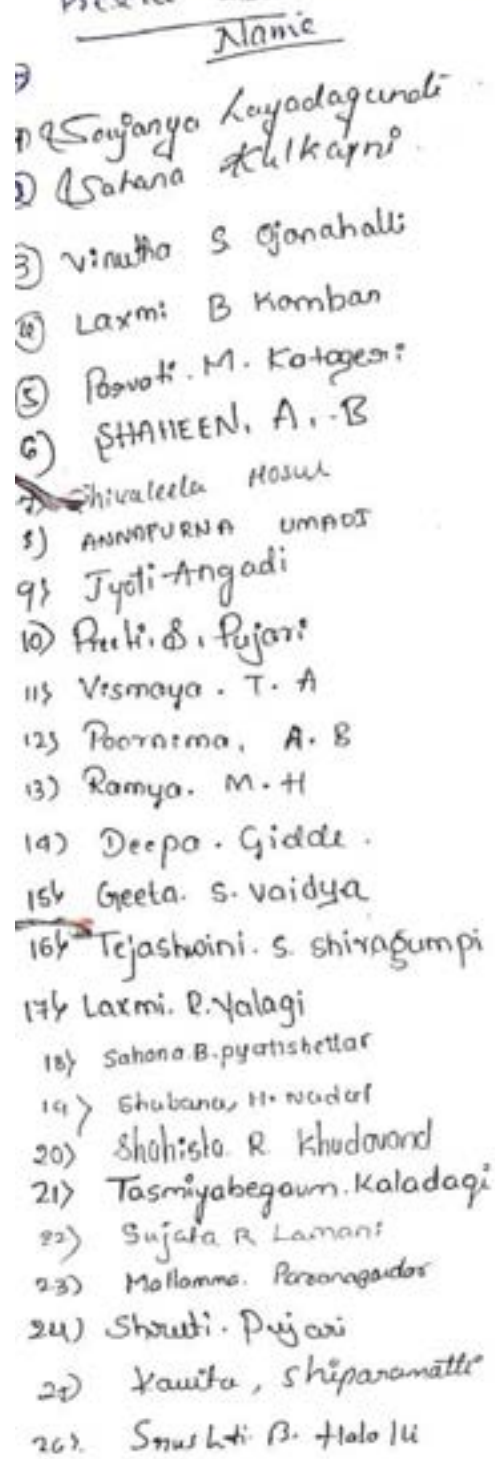 Name
1) Soujanya Layadagundi
2) Sahana Kulkarni
3) Vinutha S Ganahalli
4) Laxmi B Kamban
5) Parvati. M. Katageri
6) SHAHEEN. A. B
7) Shivaleela Hosur
8) ANNAPURNA UMADI
9) Jyoti Angadi
10) Preeti. S. Pujari
11) Vismaya. T. A
12) Poornima. A. B
13) Ramya. M. H
14) Deepa. Gidde.
15) Geeta. S. Vaidya
16) Tejashwini. S. Shiragumpi
17) Laxmi. R. Yalagi
18) Sahana. B. pyatishettar
19) Shabana, H. Nadaf
20) Shahista. R Khudavand
21) Tasmiyabegaum. Kaladagi
22) Sujata R Lamani
23) Mallamma.
24) Shruti. Pujari
25) Kavita, Shiparamatti
26) Srushti. B. Halolli